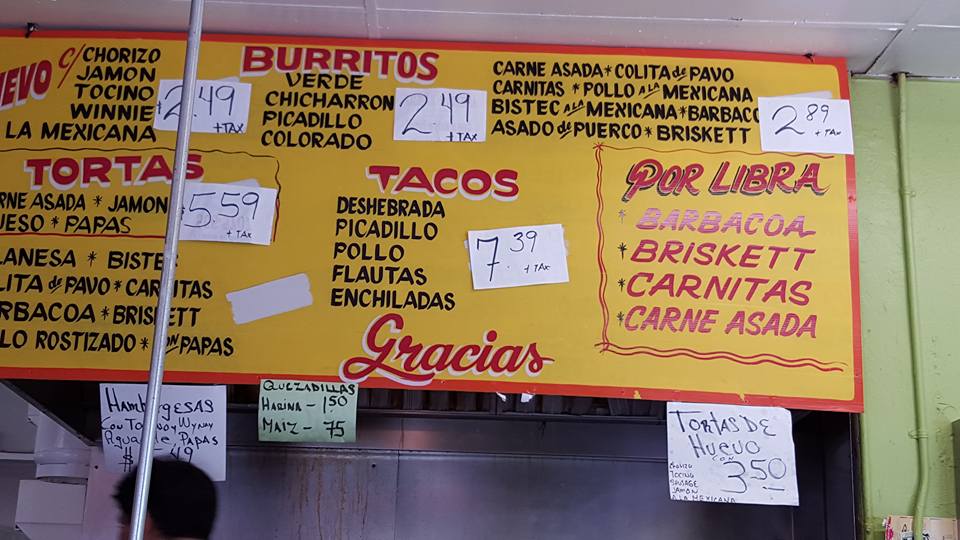 C/
CHORIZO
JAMON
TOCINO
WINNIE
LA MEXICANA
2.49
+TAX
BURRITOS
VERDE
CHICHARRON
PICADILLO
COLORADO
2.49
+TAX
CARNE ASADA*COLITA de PAVO
CARNITAS * POLLO A LA MEXICANA
BISTEC A LA MEXICANA*BARBAC
ASADO de PUERCO * BRISKETT
2 89
+TAX
TORTAS
RNE ASADA * JAMON
UESO * PAPAS
5.59
+ TAX
LANESA * BISTE
LITA de PAVO * CARNITAS
RBACOA * BRISKETT
LO ROSTIZADO * CON PAPAS
TACOS
DESHEBRADA
PICADILLO
POLLO
FLAUTAS
ENCHILADAS
7.39
+TAX
POR LIBRA
* BARBACOA
* BRISKETT
* CARNITAS
* CARNE ASADA
Gracias
HambuRGESAS
PAPAS
QUEZADILLAS
HARINA - 1.50
MAIZ - 75
TORTAS DE
HUEVO
CON
3.50
CHORIZO
TOCINO
SAUSAGE
JAMON
A LA MEXICANA